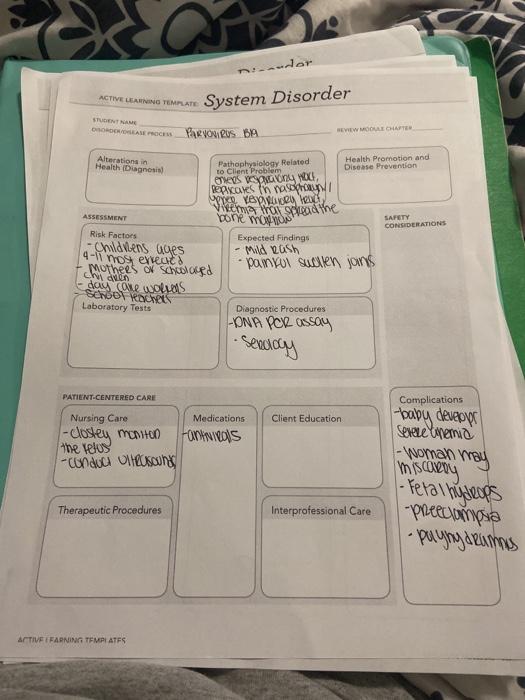 Disorder
ACTIVE LEARNING TEMPLATE: System Disorder
STUDENT NAME
DISORDER/DISEASE PROCESS PARVOVIRUS B19 REVIEW MODULE CHAPTER
Alterations in
Health (Diagnosis)
Pathophysiology Related
to Client Problem
enters respiratory tract,
Replicates in nasopharynx/
upper respiratory tract,
viremia that spread the
bone marrow
Health Promotion and
Disease Prevention
ASSESSMENT
SAFETY
CONSIDERATIONS
Risk Factors
- Childrens ages
4-11 most effected
- mothers of school aged
children
- day care workers
- school teachers
Expected Findings
- mild rash
- painful swollen joints
Laboratory Tests
Diagnostic Procedures
-DNA PCR assay
- serology
PATIENT-CENTERED CARE
Nursing Care
-closley monitor
the fetus
-conduct ultrasounds
Medications
-antivirals
Client Education
Therapeutic Procedures
Interprofessional Care
Complications
-baby develop
severe anemia
-woman may
miscarry
- Fetal hydrops
-preeclampsia
-
ACTIVE LEARNING TEMPLATES